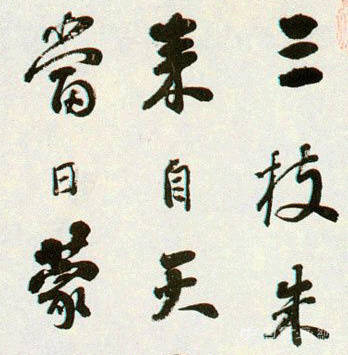 三枝朱
来自天
當日蒙